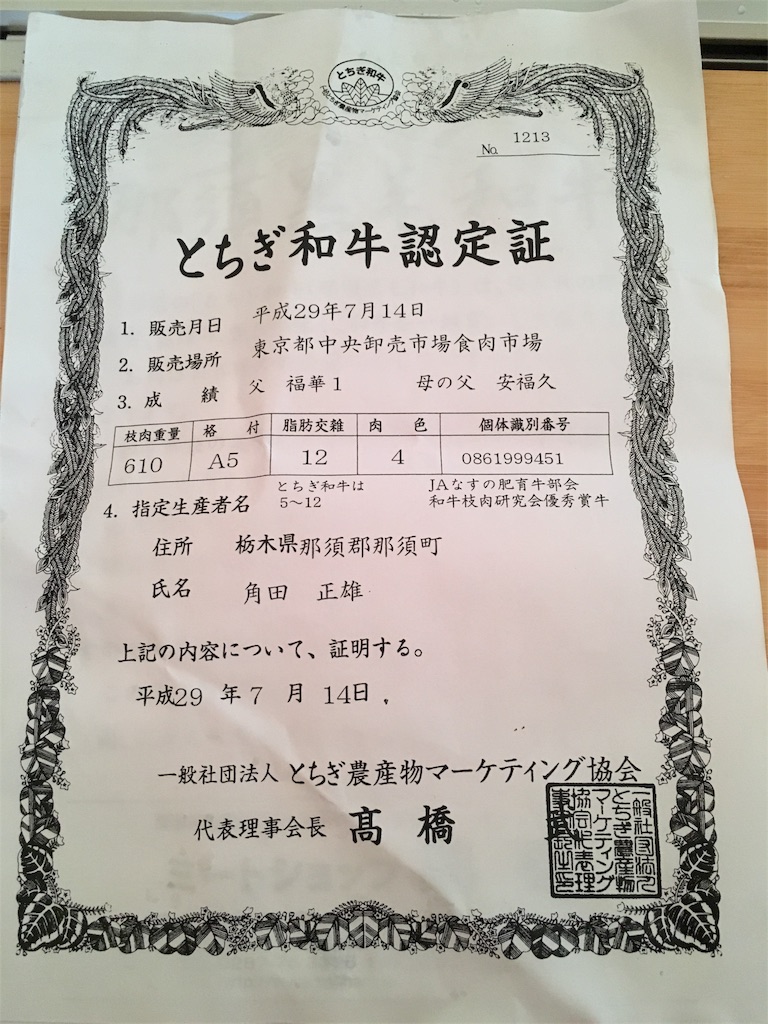 とちぎ和牛
No. 1213
とちぎ和牛認定証
1. 販売月日 平成29年7月14日
2. 販売場所 東京都中央卸売市場食肉市場
3. 成績 父 福華1 母の父 安福久
枝肉重量 格付 脂肪交雑 肉色 個体識別番号
610 A5 12 4 0861999451
とちぎ和牛は JAなすの肥育牛部会
5～12 和牛枝肉研究会優秀賞牛
4. 指定生産者名
住所 栃木県那須郡那須町
氏名 角田 正雄
上記の内容について、証明する。
平成29年7月14日
一般社団法人 とちぎ農産物マーケティング協会
代表理事会長 髙橋 武